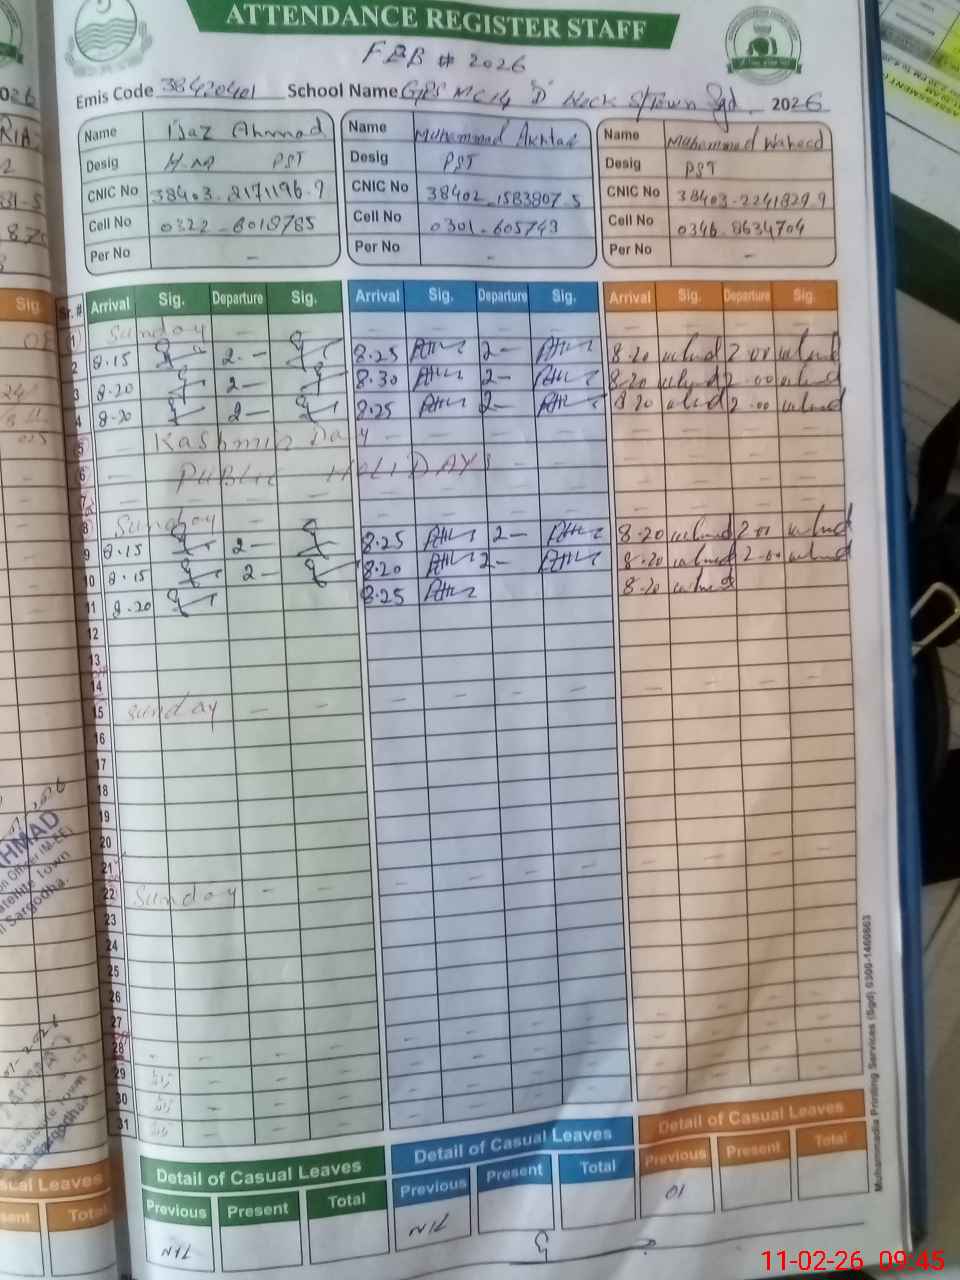 ATTENDANCE REGISTER STAFF
FEB # 2026
Emis Code 38420401 School Name GPS MC14 "D" Block S/Town Sgd. 2026
Name Ijaz Ahmad
Desig PST
CNIC No 38403-2171196-9
Cell No 0322-6018785
Per No -
Name Muhammad Akhtar
Desig PST
CNIC No 38402-1583807-5
Cell No 0301-605743
Per No -
Name Muhammad Waheed
Desig PST
CNIC No 38403-2241829-9
Cell No 0346-8634704
Per No -
Sr. # Arrival Sig. Departure Sig. Arrival Sig. Departure Sig. Arrival Sig. Departure Sig.
1 Sunday
2 8.15 2- 8.25 2- 8.20 2.00
3 8.20 2- 8.30 2- 8.20 2.00
4 8.20 2- 8.25 2- 8.20 2.00
5 Kashmir Day
6 PUBLIC HOLIDAY
7
8 Sunday
9 8.15 2- 8.25 2- 8.20 2.00
10 8.15 2- 8.20 2- 8.20 2.00
11 8.20 8.25 8.20
12
13
14
15 Sunday
16
17
18
19
20
21
22 Sunday
23
24
25
26
27
28
29
30
31
Detail of Casual Leaves
Previous Present Total
NIL
Detail of Casual Leaves
Previous Present Total
NIL
Detail of Casual Leaves
Previous Present Total
01
Muhammadia Printing Services (Sgd) 0300-1460863
11-02-26 09:45